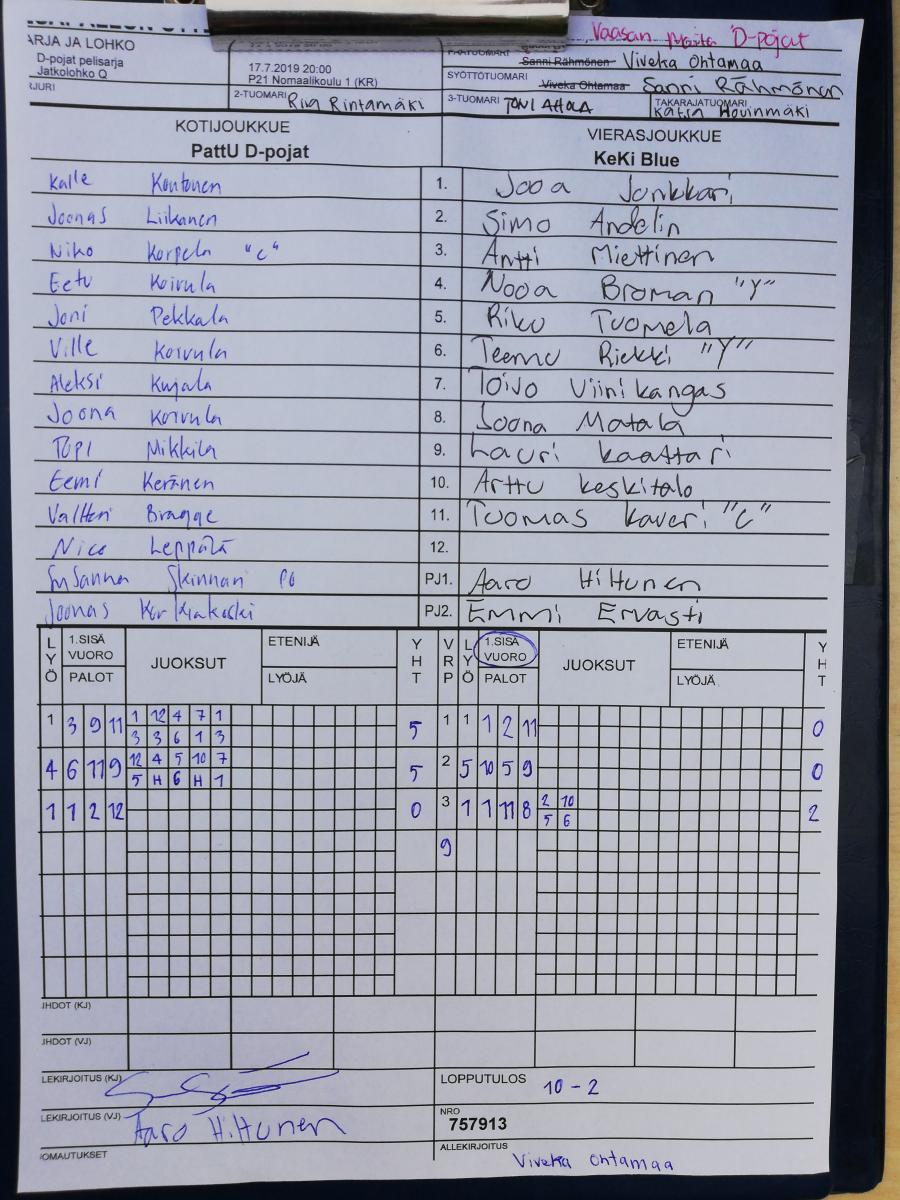 Vaasan Maila D-pojat
ARJA JA LOHKO
D-pojat pelisarja
Jatkolohko Q
17.7.2019 20:00
P21 Nomaalikoulu 1 (KR)
Sanni Rähmönen Viveka Ohtamaa
SYÖTTÖTUOMARI
Viveka Ohtamaa Sanni Rähmönen
2-TUOMARI Rintamäki
3-TUOMARI
TAKARAJATUOMARI
Katja Hovinmäki
KOTIJOUKKUE VIERASJOUKKUE
PattU D-pojat KeKi Blue
Kalle Kontonen 1. Jooa Jonkkari
Joonas Liikanen 2. Simo Andelin
Niko Korpela "C" 3. Antti Miettinen
Eetu Koivula 4. Nooa Broman "Y"
Joni Pekkala 5. Riku Tuomela
Ville Koivula 6. Teemu Riekki "Y"
Aleksi Kujala 7. Toivo Viinikangas
Joona Koivula 8. Joona Matala
Topi Mikkila 9. Lauri kaattari
Eemi Keränen 10. Arttu keskitalo
Valtteri Bragge 11. Tuomas kaveri "C"
Nico Leppälä 12.
Susanna Skinnari PJ1. Aaro Hiltunen
Joonas Korkiakoski PJ2. Emmi Ervasti
LYÖ 1.SISÄ VUORO PALOT JUOKSUT ETENIJÄ LYÖJÄ YHT VRP LYÖ 1.SISÄ VUORO PALOT JUOKSUT ETENIJÄ LYÖJÄ YHT
1 3 9 11 1 12 4 7 1 5 1 1 1 2 11 0
3 3 6 1 3
4 6 11 9 12 4 5 10 7 5 2 5 10 5 9 0
5 H 6 H 1
1 1 2 12 0 3 1 1 11 8 2 10 2
5 6
9
JHDOT (KJ)
JHDOT (VJ)
LEKIRJOITUS (KJ)
LOPPUTULOS 10 - 2
LEKIRJOITUS (VJ) Aaro Hiltunen
NRO
757913
OMAUTUKSET
ALLEKIRJOITUS
Viveka Ohtamaa